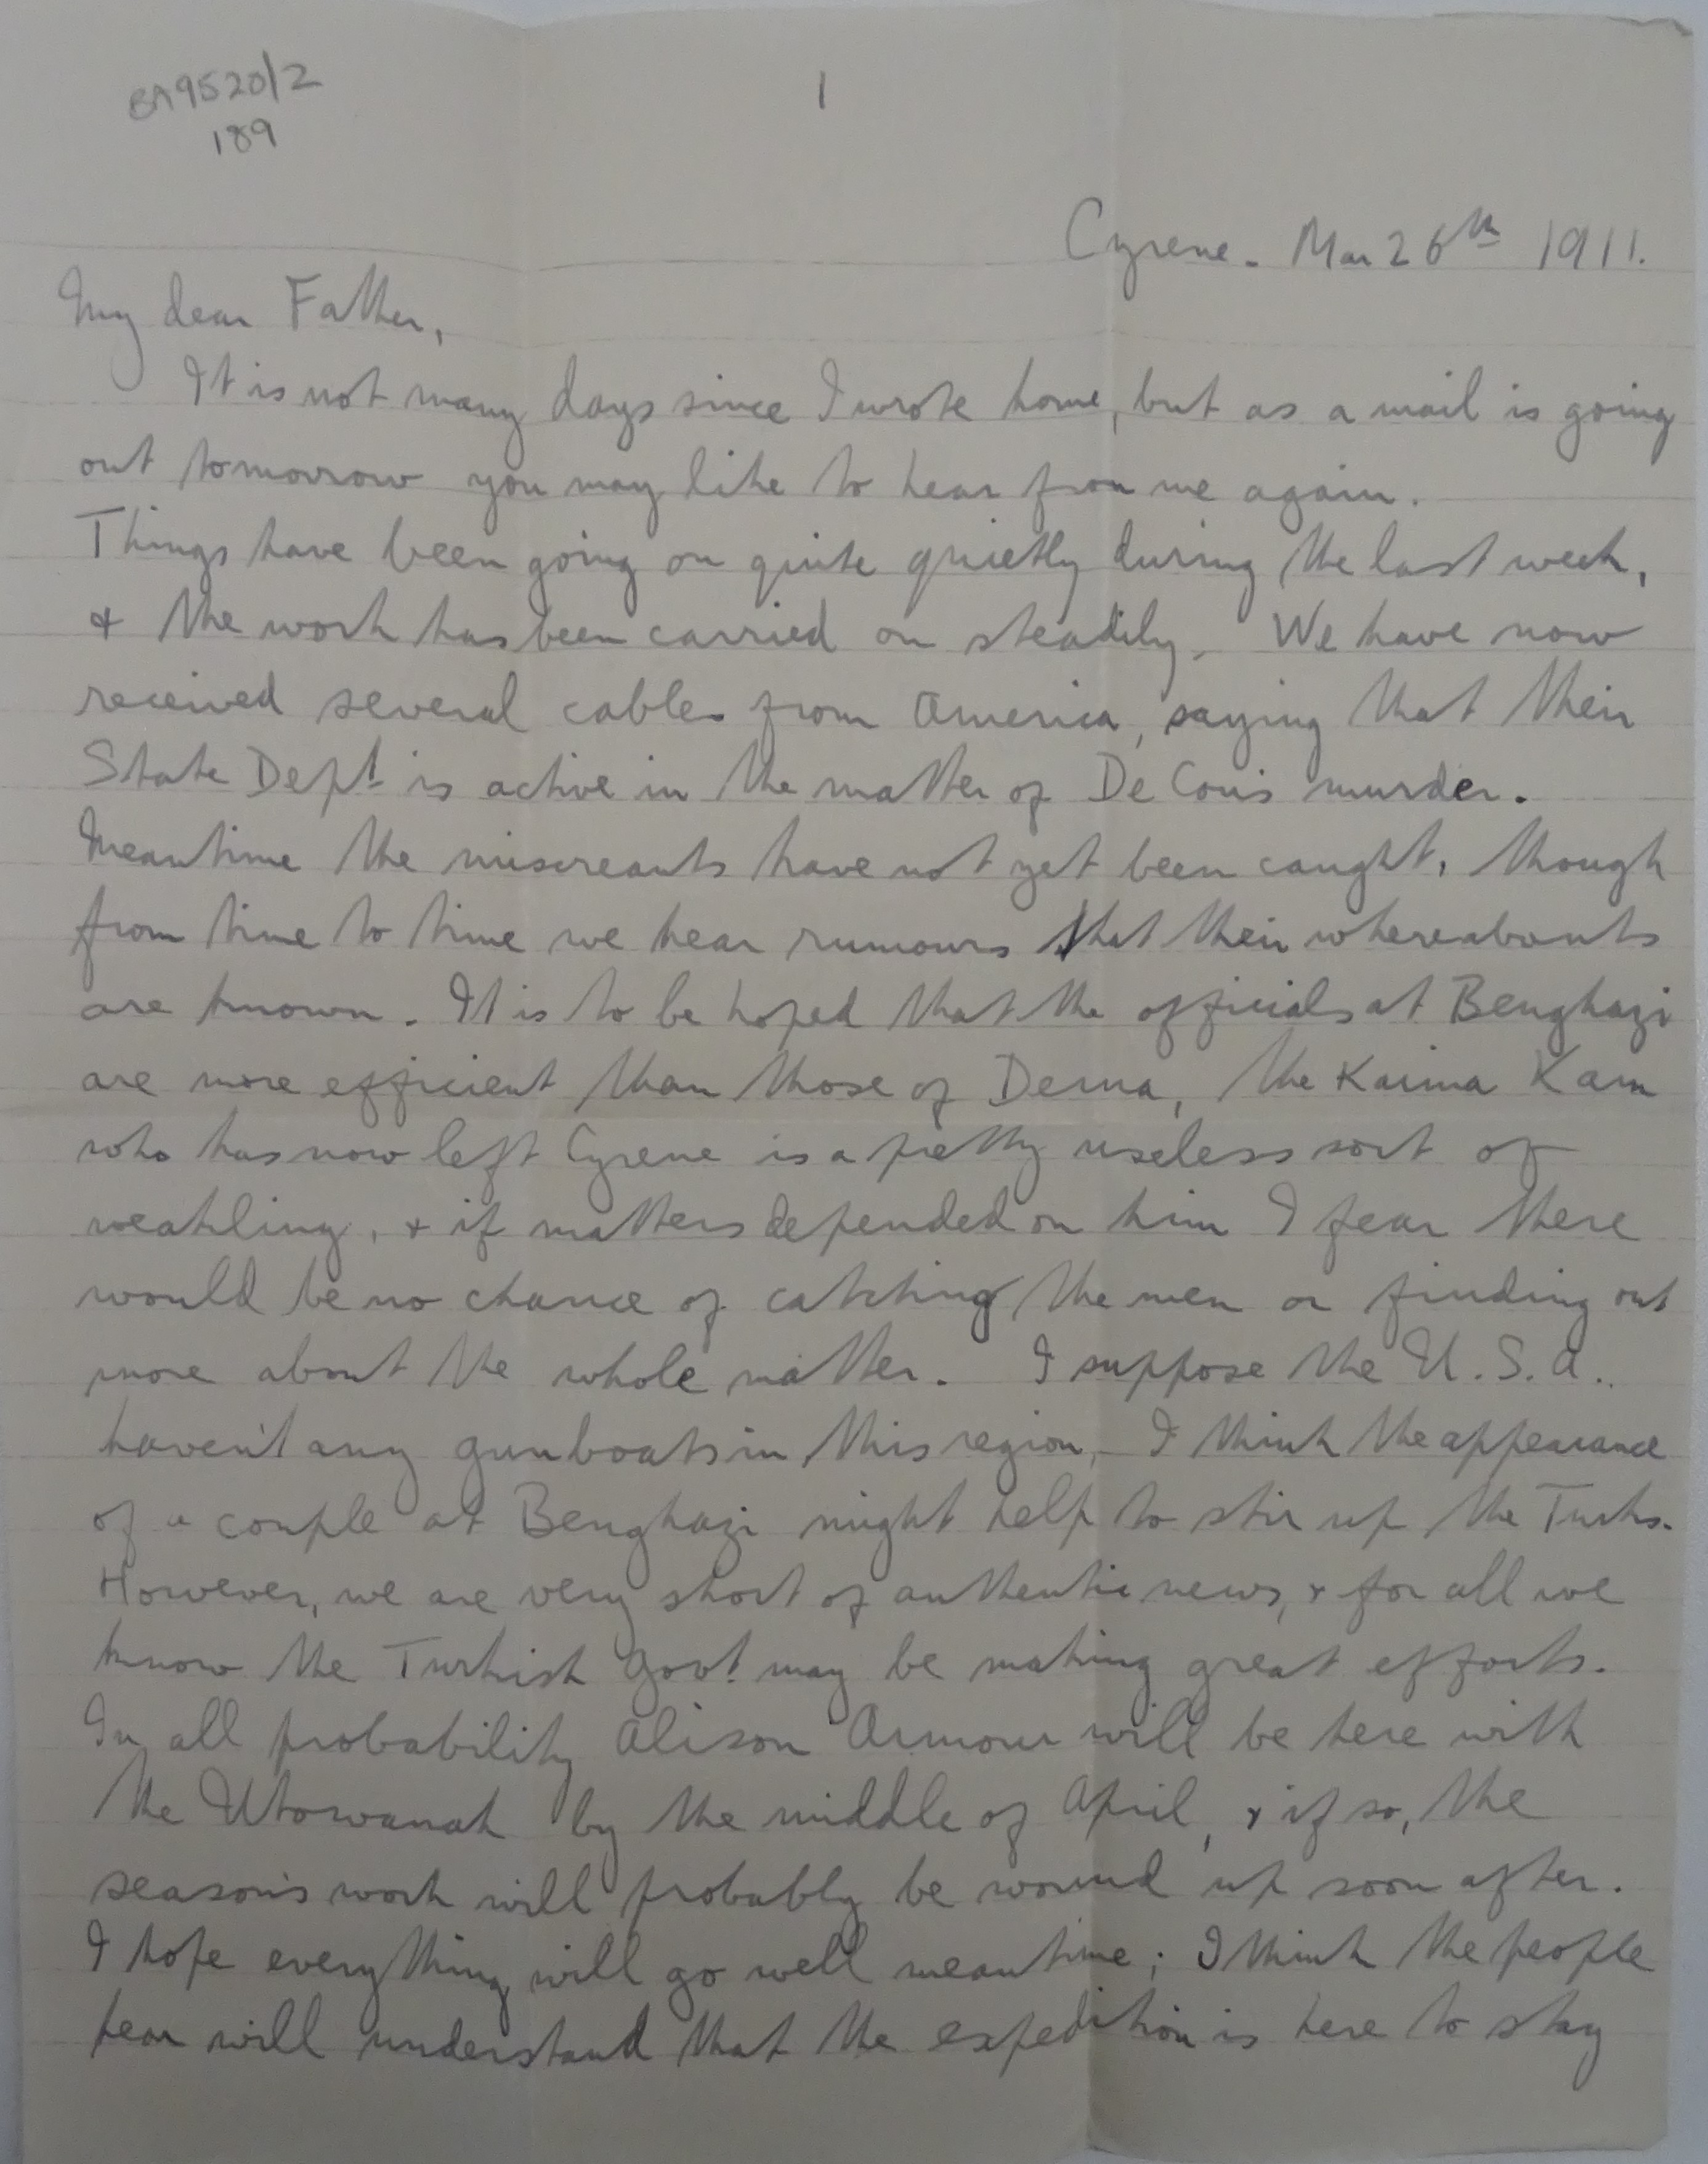 BA9520/2
189
1
Cyrene. Mar 26th 1911.
My dear Father,
It is not many days since I wrote home, but as a mail is going
out tomorrow you may like to hear from me again.
Things have been going on quite quietly during the last week,
& the work has been carried on steadily. We have now
received several cables from America, saying that their
State Dept. is active in the matter of De Cou's murder.
Meantime the miscreants have not yet been caught, though
from time to time we hear rumours that their whereabouts
are known. It is to be hoped that the officials at Benghazi
are more efficient than those of Derna, the Kaima Kam
who has now left Cyrene is a pretty useless sort of
weakling, & if matters depended on him I fear there
would be no chance of catching the men or finding out
more about the whole matter. I suppose the U.S.A..
haven't any gunboats in this region, I think the appearance
of a couple at Benghazi might help to stir up the Turks.
However, we are very short of authentic news, & for all we
know the Turkish Govt. may be making great efforts.
In all probability Alison Armour will be here with
the Utowanah by the middle of April, & if so, the
season's work will probably be wound up soon after.
I hope everything will go well meantime; I think the people
hear will understand that the expedition is here to stay